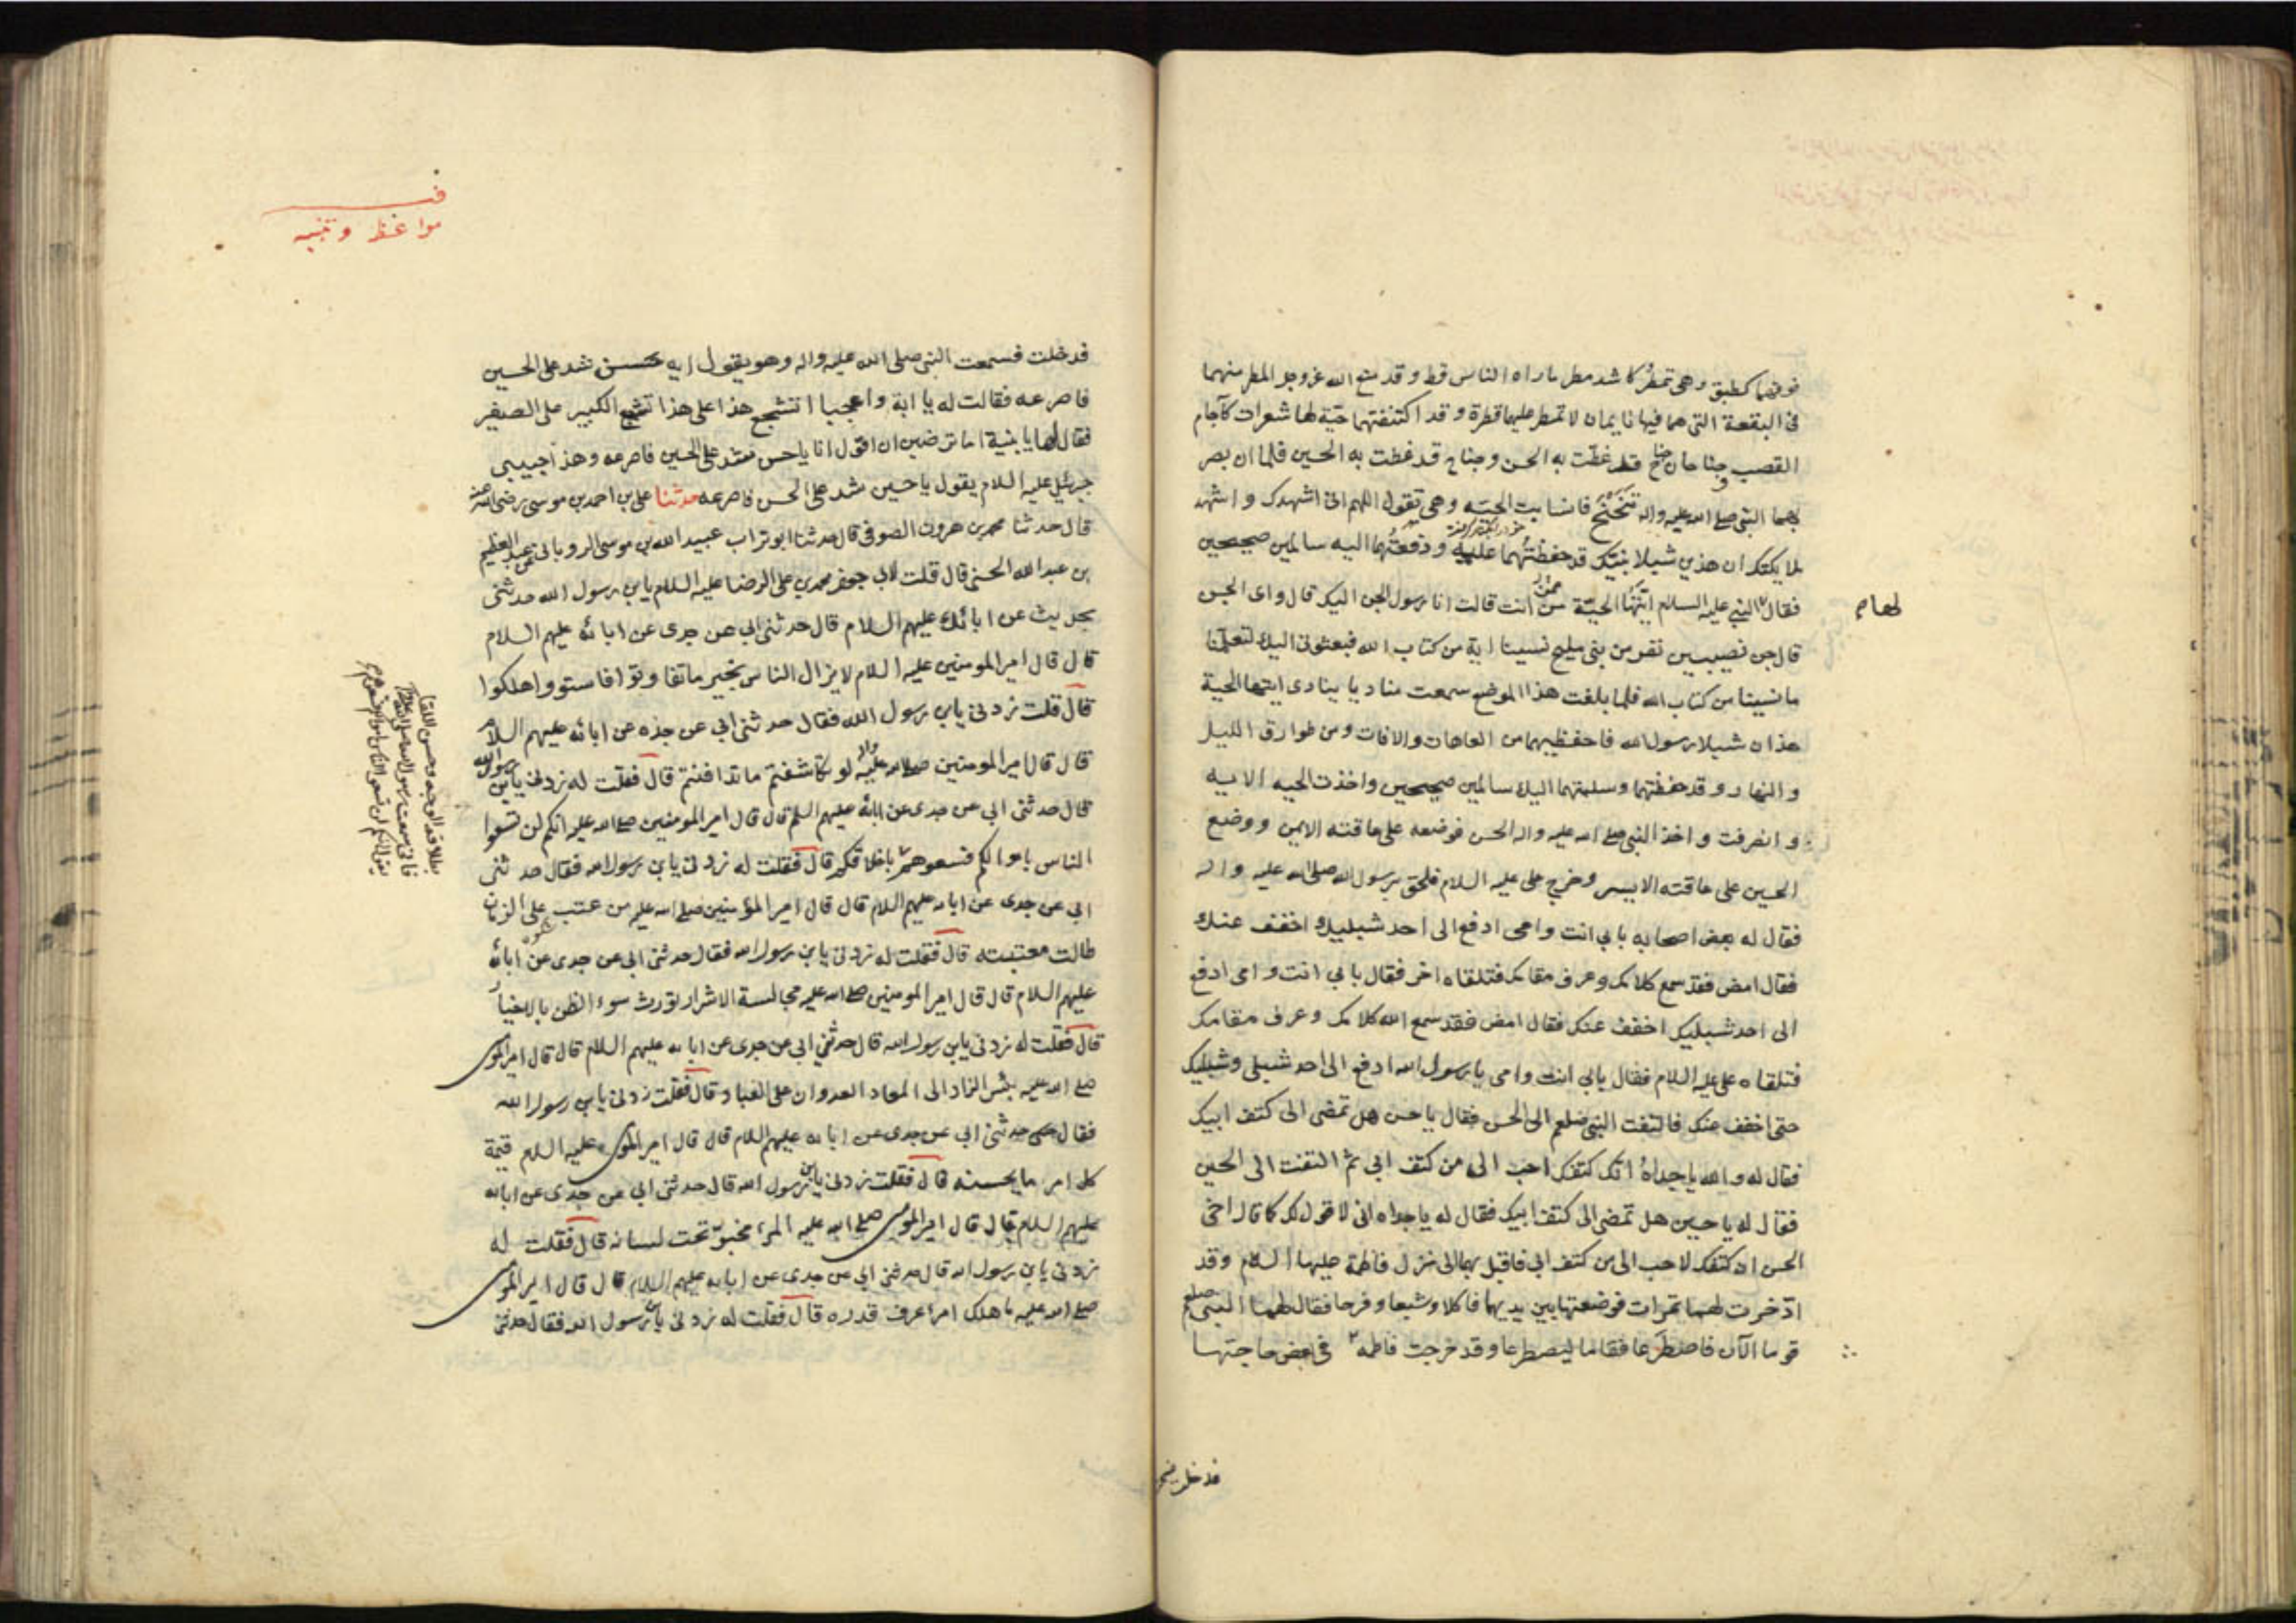 فوقهما كطبق وهي تمطر كاشد مطر ما راه الناس قط وقد منع الله عز وجل المطر منهما
في البقعة التي هما فيها نايمان لا تمطر عليهما قطرة وقد اكتنفتهما حية لها شعرات كآجام
القصب وجناحان جناح قد غطت به الحسن وجناح قد غطت به الحسين فلما ان بصر
بهما النبي صلى الله عليه واله تنحنح فانسابت الحية وهي تقول اللهم اني اشهدك واشهد
ملايكتك ان هذين شبلا نبيك قد حفظتهما عليه ودفعتهما اليه سالمين صحيحين
فقال لها النبي عليه السلام ايتها الحية ممن انت قالت انا رسول الجن اليك قال واى الجن
قال جن نصيبين نفر من بني مليح نسينا اية من كتاب الله فبعثوني اليك لتعلمنا
ما نسينا من كتاب الله فلما بلغت هذا الموضع سمعت مناديا ينادى ايتها الحية
هذان شبلا رسول الله فاحفظيهما من العاهات والافات ومن طوارق الليل
والنهار وقد حفظتهما وسلمتهما اليك سالمين صحيحين واخذت الحيه الايه
وانصرفت واخذ النبي صلى الله عليه واله الحسن فوضعه على عاقته الايمن ووضع
الحسين على عاقته الايسر وخرج علي عليه السلام فلحق برسول الله صلى الله عليه واله
فقال له بعض اصحابه بابي انت وامى ادفع الى احد شبليك اخفف عنك
فقال امض فقد سمع كلامك وعرف مقامك فتلقاه اخر فقال بابي انت وامى ادفع
الى احد شبليك اخفف عنك فقال امض فقد سمع الله كلامك وعرف مقامك
فتلقاه علي عليه السلام فقال بابي انت وامى يا رسول الله ادفع الى احد شبلي وشبليك
حتى اخفف عنك فالتفت النبي صلعم الى الحسن فقال يا حسن هل تمضى الى كتف ابيك
فقال له والله يا جداه ان كتفك احب الى من كتف ابي ثم التفت الى الحسين
فقال له يا حسين هل تمضى الى كتف ابيك فقال له يا جداه اني لاقول لك كما قال اخى
الحسن ان كتفك لاحب الى من كتف ابي فاقبل بهما الى منزل فاطمة عليها السلام وقد
ادخرت لهما تمرات فوضعتها بين يديهما فاكلا وشبعا وفرحا فقال لهما النبي صلعم
قوما الآن فاصطرعا فقاما ليصطرعا وقد خرجت فاطمه في بعض حاجتها
لها م
فدخلت فسمعت
فى
مواعظ وتنبيه
فدخلت فسمعت النبي صلى الله عليه واله وهو يقول ايه حسن شد على الحسين
فاصرعه فقالت له يا ابة واعجبا اتشجع هذا على هذا تشجع الكبير على الصغير
فقال لها يا بنية اما ترضين ان اقول انا يا حسن شد على الحسين فاصرعه وهذا حبيبي
جبرئيل عليه السلام يقول يا حسين شد على الحسن فاصرعه حدثنا علي بن احمد بن موسى رضي الله عنه
قال حدثنا محمد بن هرون الصوفى قال حدثنا ابو تراب عبيد الله بن موسى الروياني عن عبد العظيم
بن عبد الله الحسني قال قلت لابي جعفر محمد بن علي الرضا عليه السلام يابن رسول الله حدثنى
بحديث عن ابائك عليهم السلام قال حدثني ابي عن جدى عن ابائه عليهم السلام
قال قال امير المومنين عليه السلام لا يزال الناس بخير ما تفاوتوا فاذا استووا هلكوا
قال قلت زدني يابن رسول الله فقال حدثنى ابي عن جده عن ابائه عليهم السلام
قال قال امير المومنين صلى الله عليه واله لو تكاشفتم ما تدافنتم قال فقلت له زدني يابن رسول الله
قال حدثنى ابي عن جدى عن ابائه عليهم السلم قال قال امير المومنين صلى الله عليه انكم لن تسعوا
الناس باموالكم فسعوهم باخلاقكم قال فقلت له زدني يابن رسول الله فقال حدثنى
ابي عن جدى عن ابائه عليهم السلام قال قال امير المؤمنين صلى الله عليه من عتب على الزمان
طالت معتبته قال فقلت له زدني يابن رسول الله فقال حدثني ابي عن جدى عن ابائه
عليهم السلام قال قال امير المومنين صلى الله عليه مجالسة الاشرار تورث سوء الظن بالاخيار
قال فقلت له زدني يابن رسول الله قال حدثني ابي عن جدى عن ابائه عليهم السلام قال قال امير المومنين
صلى الله عليه بئس الزاد الى المعاد العدوان على العباد قال فقلت زدني يابن رسول الله
فقال حدثني ابي عن جدى عن ابائه عليهم السلام قال قال امير المومنين عليه السلام قيمة
كل امرء ما يحسنه قال فقلت زدني يابن رسول الله قال حدثني ابي عن جدى عن ابائه
عليهم السلام قال قال امير المومنين صلى الله عليه المرء مخبو تحت لسانه قال فقلت له
زدني يابن رسول الله قال حدثني ابي عن جدى عن ابائه عليهم السلام قال قال امير المومنين
صلى الله عليه ما هلك امرء عرف قدره قال فقلت له زدني يابن رسول الله فقال حدثنى
بطلاقة الوجه وحسن اللقاء
فاني سمعت رسول الله صلى الله عليه واله
يقول انكم لن تسعوا الناس باموالكم فسعوهم